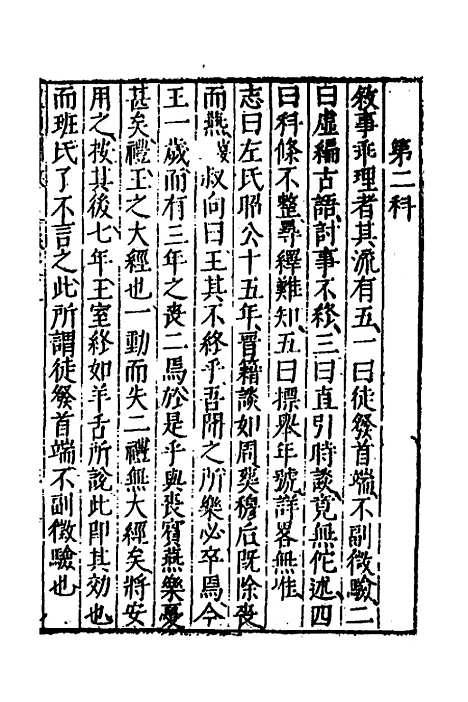 第二科
敘事乖理者其流有五一曰徒發首端不副徵驗二
曰虛編古語討事不終三曰直引時談竟無佗述四
曰科條不整尋繹難知五曰摽舉年號詳畧無准
志曰左氏昭公十五年晉籍談如周𦵏穆后既除喪
而燕叔向曰王其不終乎吾聞之所樂必卒焉今
王一歲而有三年之喪二焉於是乎與喪賓燕樂憂
甚矣禮王之大經也一動而失二禮無大經矣將安
用之按其後七年王室終如羊舌所說此即其効也
而班氏了不言之此所謂徒發首端不副徵驗也